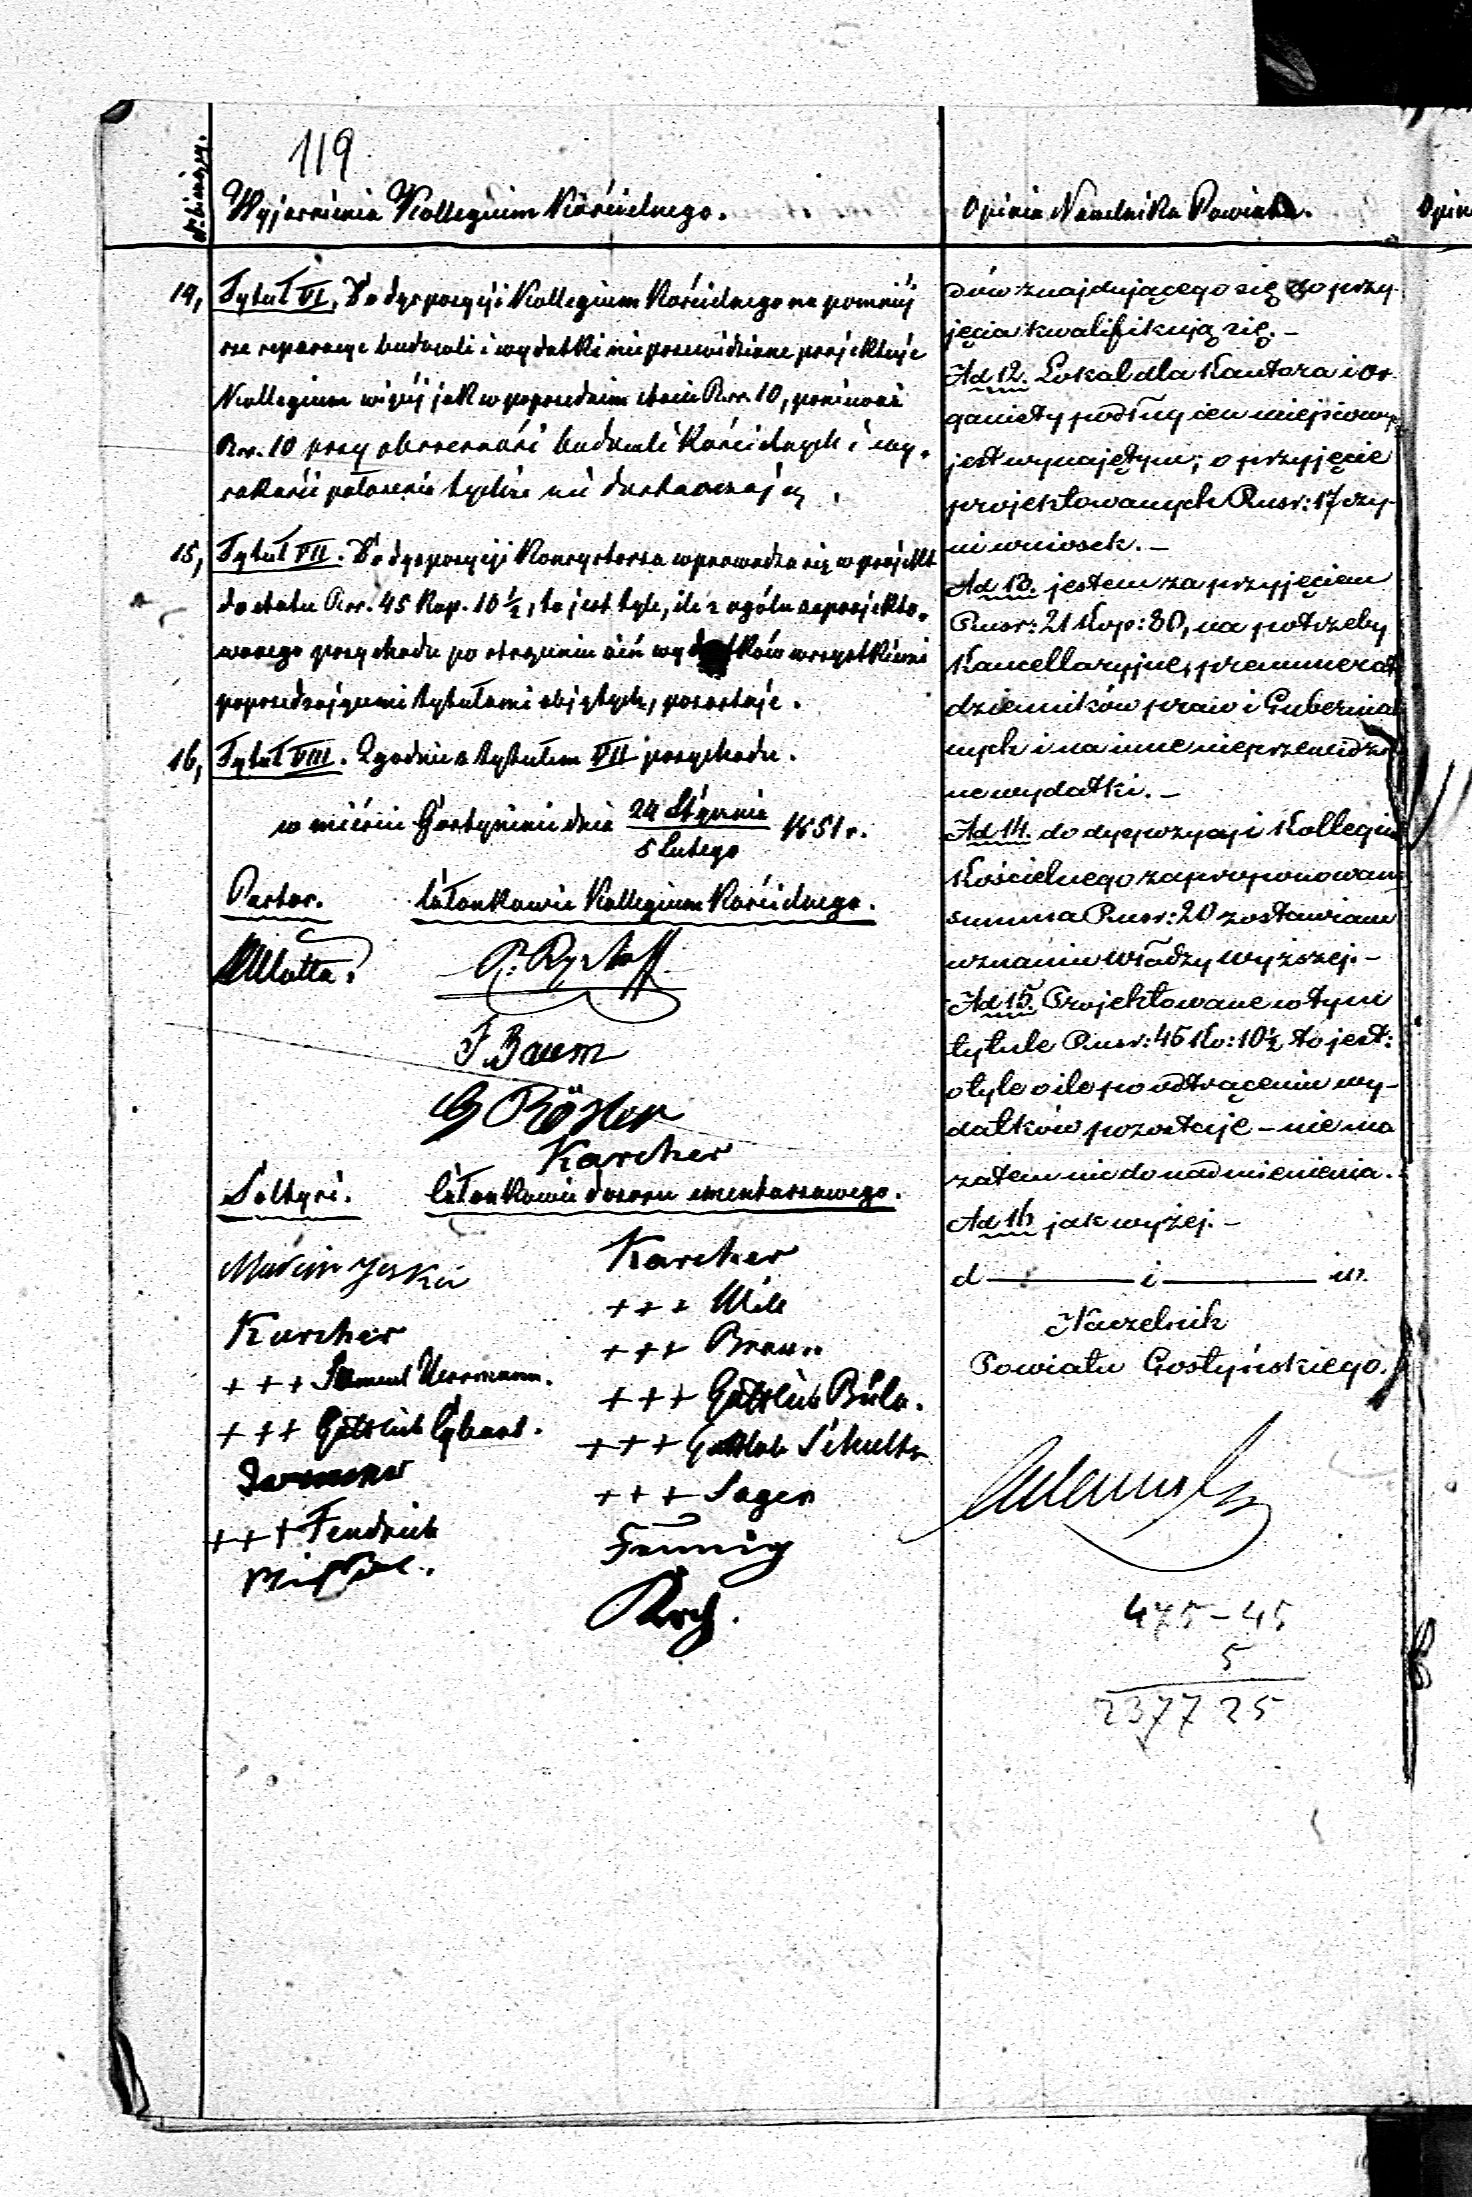 119
Wyjaśnienia Kollegium Kościelnego.
14, Tytuł VI. Do dyspozycyi Kollegium Kościelnego na pomniej
sze reparacye budowli i wydatki nieprzewidziane projektuje
Kollegium więcej jak w poprzednim etacie Rsr. 10, ponieważ
Rsr. 10 przy obszerności budowli Kościelnych i wy-
sokości położenia tychże nie dostarczają.
15, Tytuł VII. Do dyspozycyi Konsystorza wprowadza się w projekt
do etatu Rsr. 45 Kop. 10 ½, to jest tyle, ile z ogółu zaprojekto-
wanego przychodu po strąceniu zeń wydatków wszystkiemi
poprzedzającemi tytułami objętych, pozostaje.
16, Tytuł VIII. Zgodnie z tytułem VII przychodu.
w mieście Gostyninie dnia 24 Stycznia / 5 Lutego 1851 r.
Pastor. Członkowie Kollegium Kościelnego.
F Baum
G Röster
Karcher
Sołtysi. Członkowie dozoru cmentarzowego.
Marcin
Karcher
Karcher
+ + + Milke
+ + + Braun
+ + + Herrmann.
+ + + Gottlieb
+ + + Gottlieb
+ + + Gottlob Schultz
+ + + Sager
+ + + Fendrich
Opinia Naczelnika Powiatu.
dów znajdującego się do przy-
jęcia kwalifikują się. —
Ad 12. Lokal dla Kantora i or-
ganisty podług cen miejscowych
jest wynajętym; o przyjęcie
projektowanych Rusr: 17 czy-
ni wniosek. —
Ad 13. jestem za przyjęciem
Rusr: 21 Kop: 80, na potrzeby
Kancellaryjne, prenumeratę
dzienników praw i Gubernial
nych i na inne nieprzewidzia
ne wydatki. —
Ad 14. do dyspozycyi Kollegium
Kościelnego zaproponowaną
summa Rusr: 20 zostawiam
uznaniu władzy wyższej. —
Ad 15. Projektowane w tym
tytule Rusr: 45 Ko: 10½ to jest:
o tyle o ile po odtrąceniu wy-
datków pozostaje — nie ma
zatem nic do nadmienienia.
Ad 16 jak wyżej. —
Naczelnik
Powiatu Gostyńskiego.
475 – 45
5
2377 25